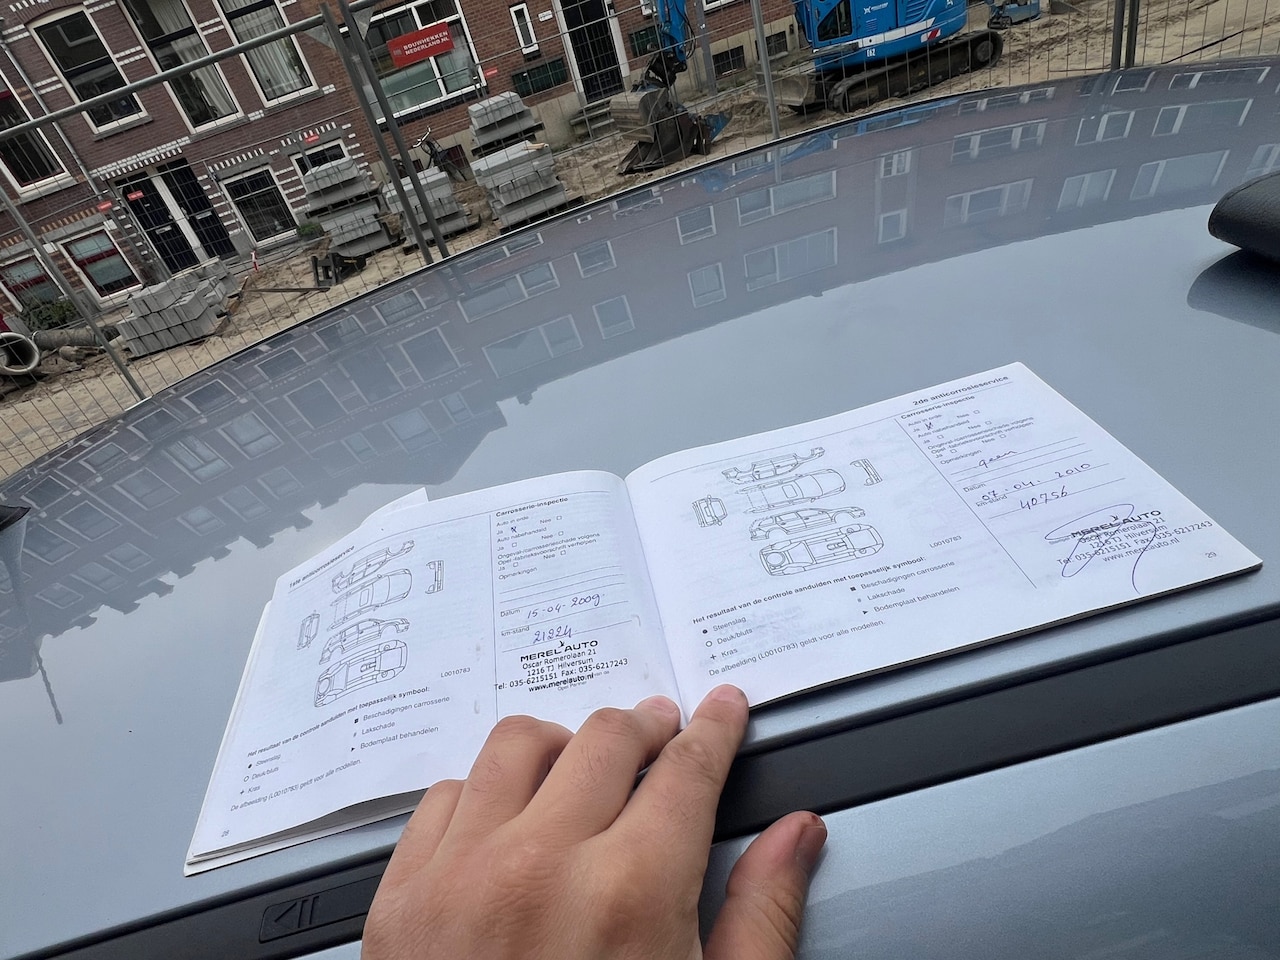 BOUWHEKKEN
NEDERLAND.NL
E62
1ste anticorrosieservice
Carrosserie-inspectie
Auto in orde
Ja X Nee □
Auto nabehandeld
Ja □ Nee □
Ongeval-/carrosserieschade volgens
Opel-/fabrieksvoorschrift verholpen
Ja □ Nee □
Opmerkingen
Datum 15-04-2009
km-stand 21224
MEREL AUTO
Oscar Romerolaan 21
1216 TJ Hilversum
Tel: 035-6215151 Fax: 035-6217243
www.merelauto.nl
Opel Partner
L0010783
Het resultaat van de controle aanduiden met toepasselijk symbool:
● Steenslag
○ Deuk/bluts
+ Kras
■ Beschadigingen carrosserie
# Lakschade
► Bodemplaat behandelen
De afbeelding (L0010783) geldt voor alle modellen.
28
2de anticorrosieservice
Carrosserie-inspectie
Auto in orde
Ja X Nee □
Auto nabehandeld
Ja □ Nee □
Ongeval-/carrosserieschade volgens
Opel-/fabrieksvoorschrift verholpen
Ja □ Nee □
Opmerkingen
geen
Datum 07-04-2010
km-stand 40756
MEREL AUTO
Oscar Romerolaan 21
1216 TJ Hilversum
Tel: 035-6215151 Fax: 035-6217243
www.merelauto.nl
L0010783
Het resultaat van de controle aanduiden met toepasselijk symbool:
● Steenslag
○ Deuk/bluts
+ Kras
■ Beschadigingen carrosserie
# Lakschade
► Bodemplaat behandelen
De afbeelding (L0010783) geldt voor alle modellen.
29